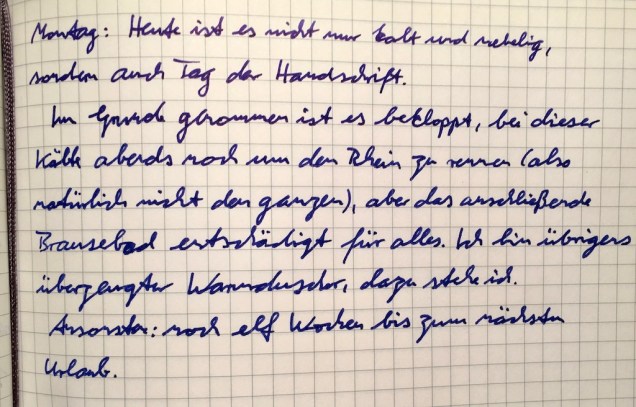 Montag: Heute ist es nicht nur kalt und nebelig,
sondern auch Tag der Handschrift.
Im Grunde genommen ist es bekloppt, bei dieser
Kälte abends noch um den Rhein zu rennen (also
natürlich nicht den ganzen), aber das anschließende
Brausebad entschädigt für alles. Ich bin übrigens
überzeugter Warmduscher, dazu stehe ich.
Ansonsten: noch elf Wochen bis zum nächsten
Urlaub.